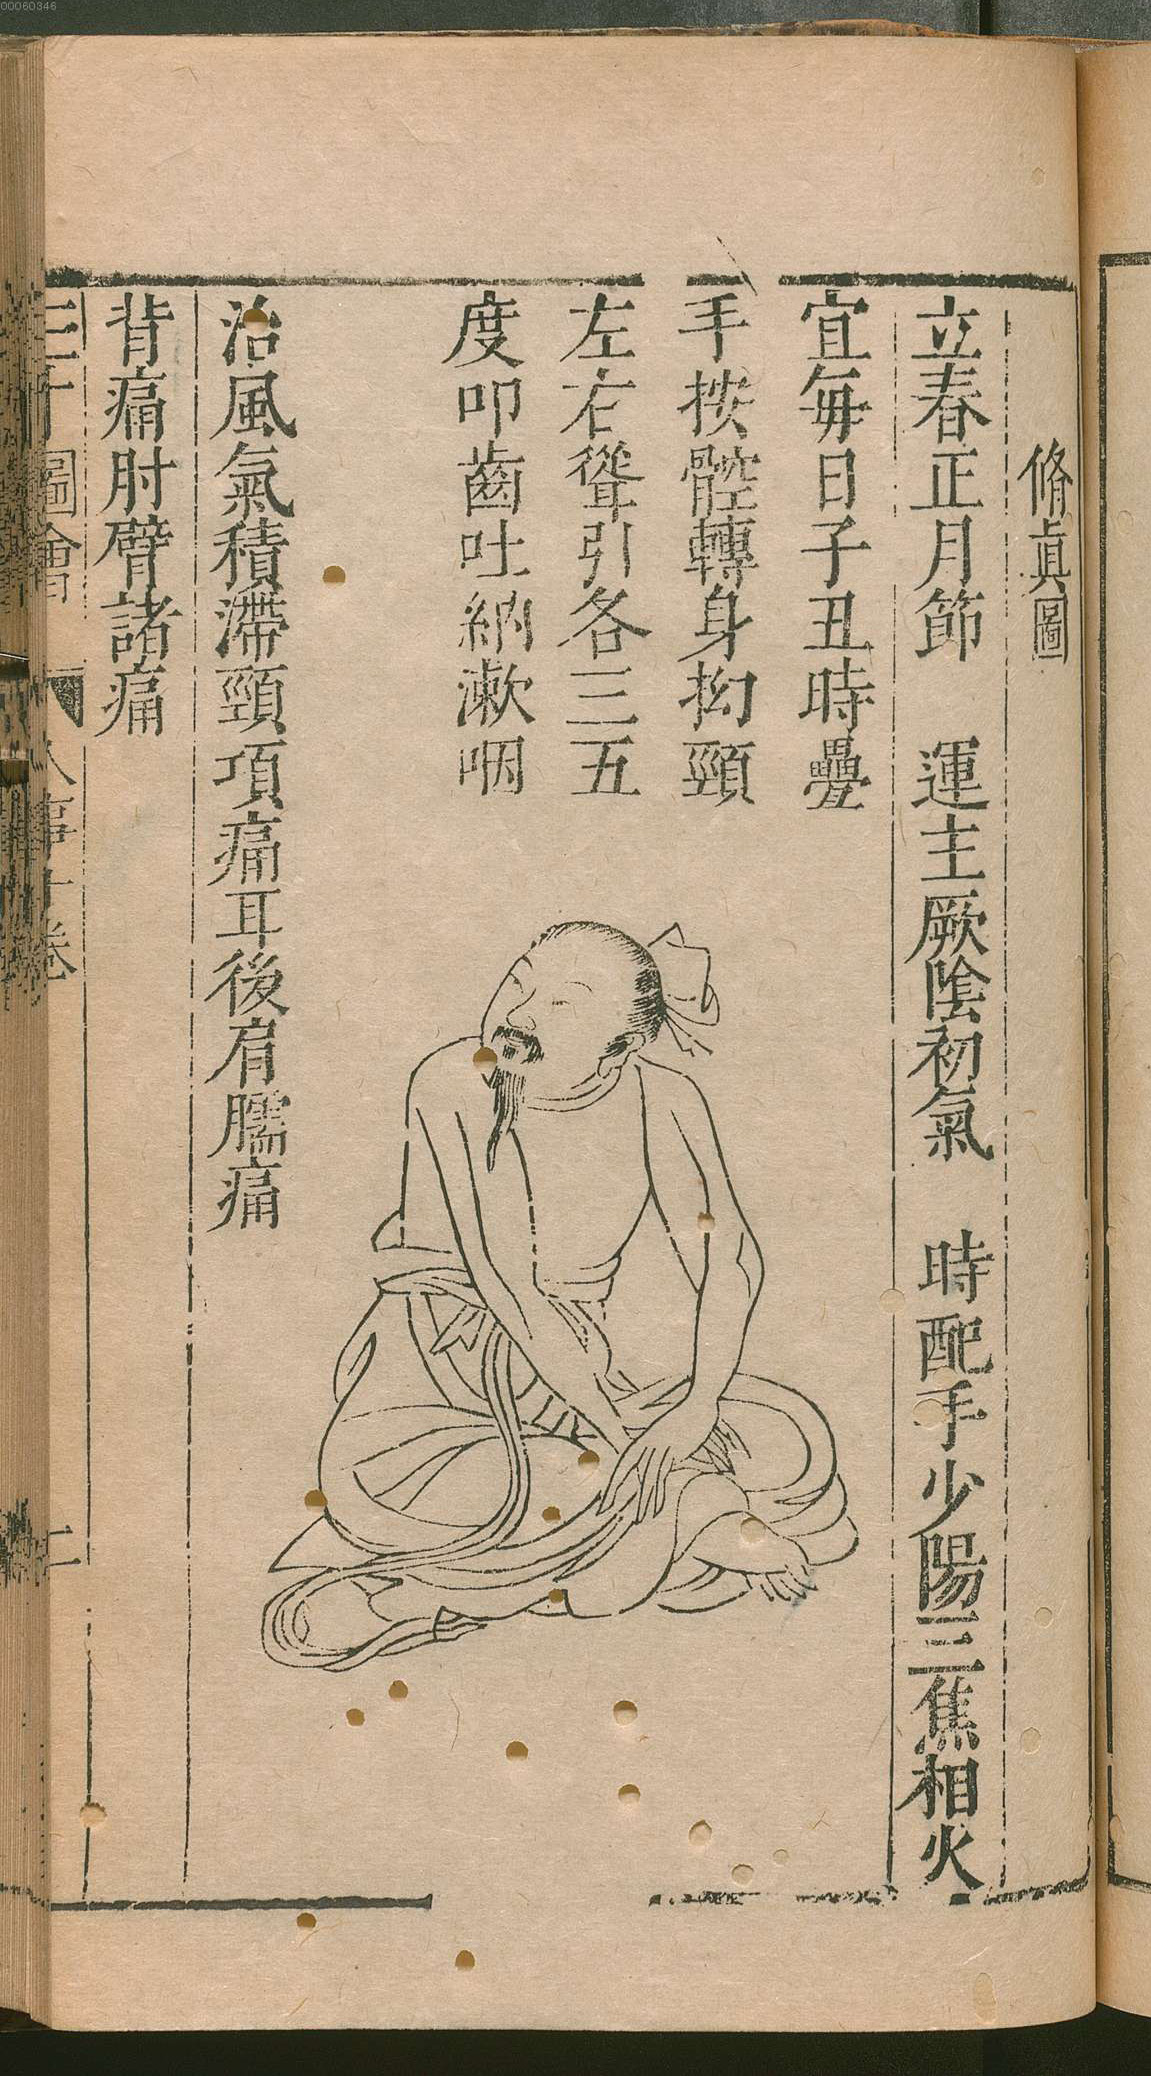 脩眞圖
立春正月節　運主厥陰初氣　時配手少陽三焦相火
宜每日子丑時疊
手按髀轉身拗頸
左右聳引各三五
度叩齒吐納漱咽
治風氣積滯頸項痛耳後肩臑痛
背痛肘臂諸痛
三才圖會　人事十卷　一
00060346